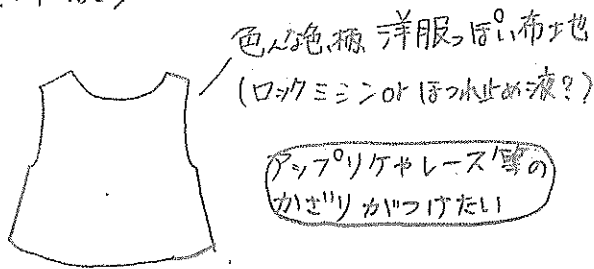 色んな色、柄、洋服っぽい布地
(ロックミシンor ほつれ止め液?)
アップリケやレース等の
かざりがつけたい